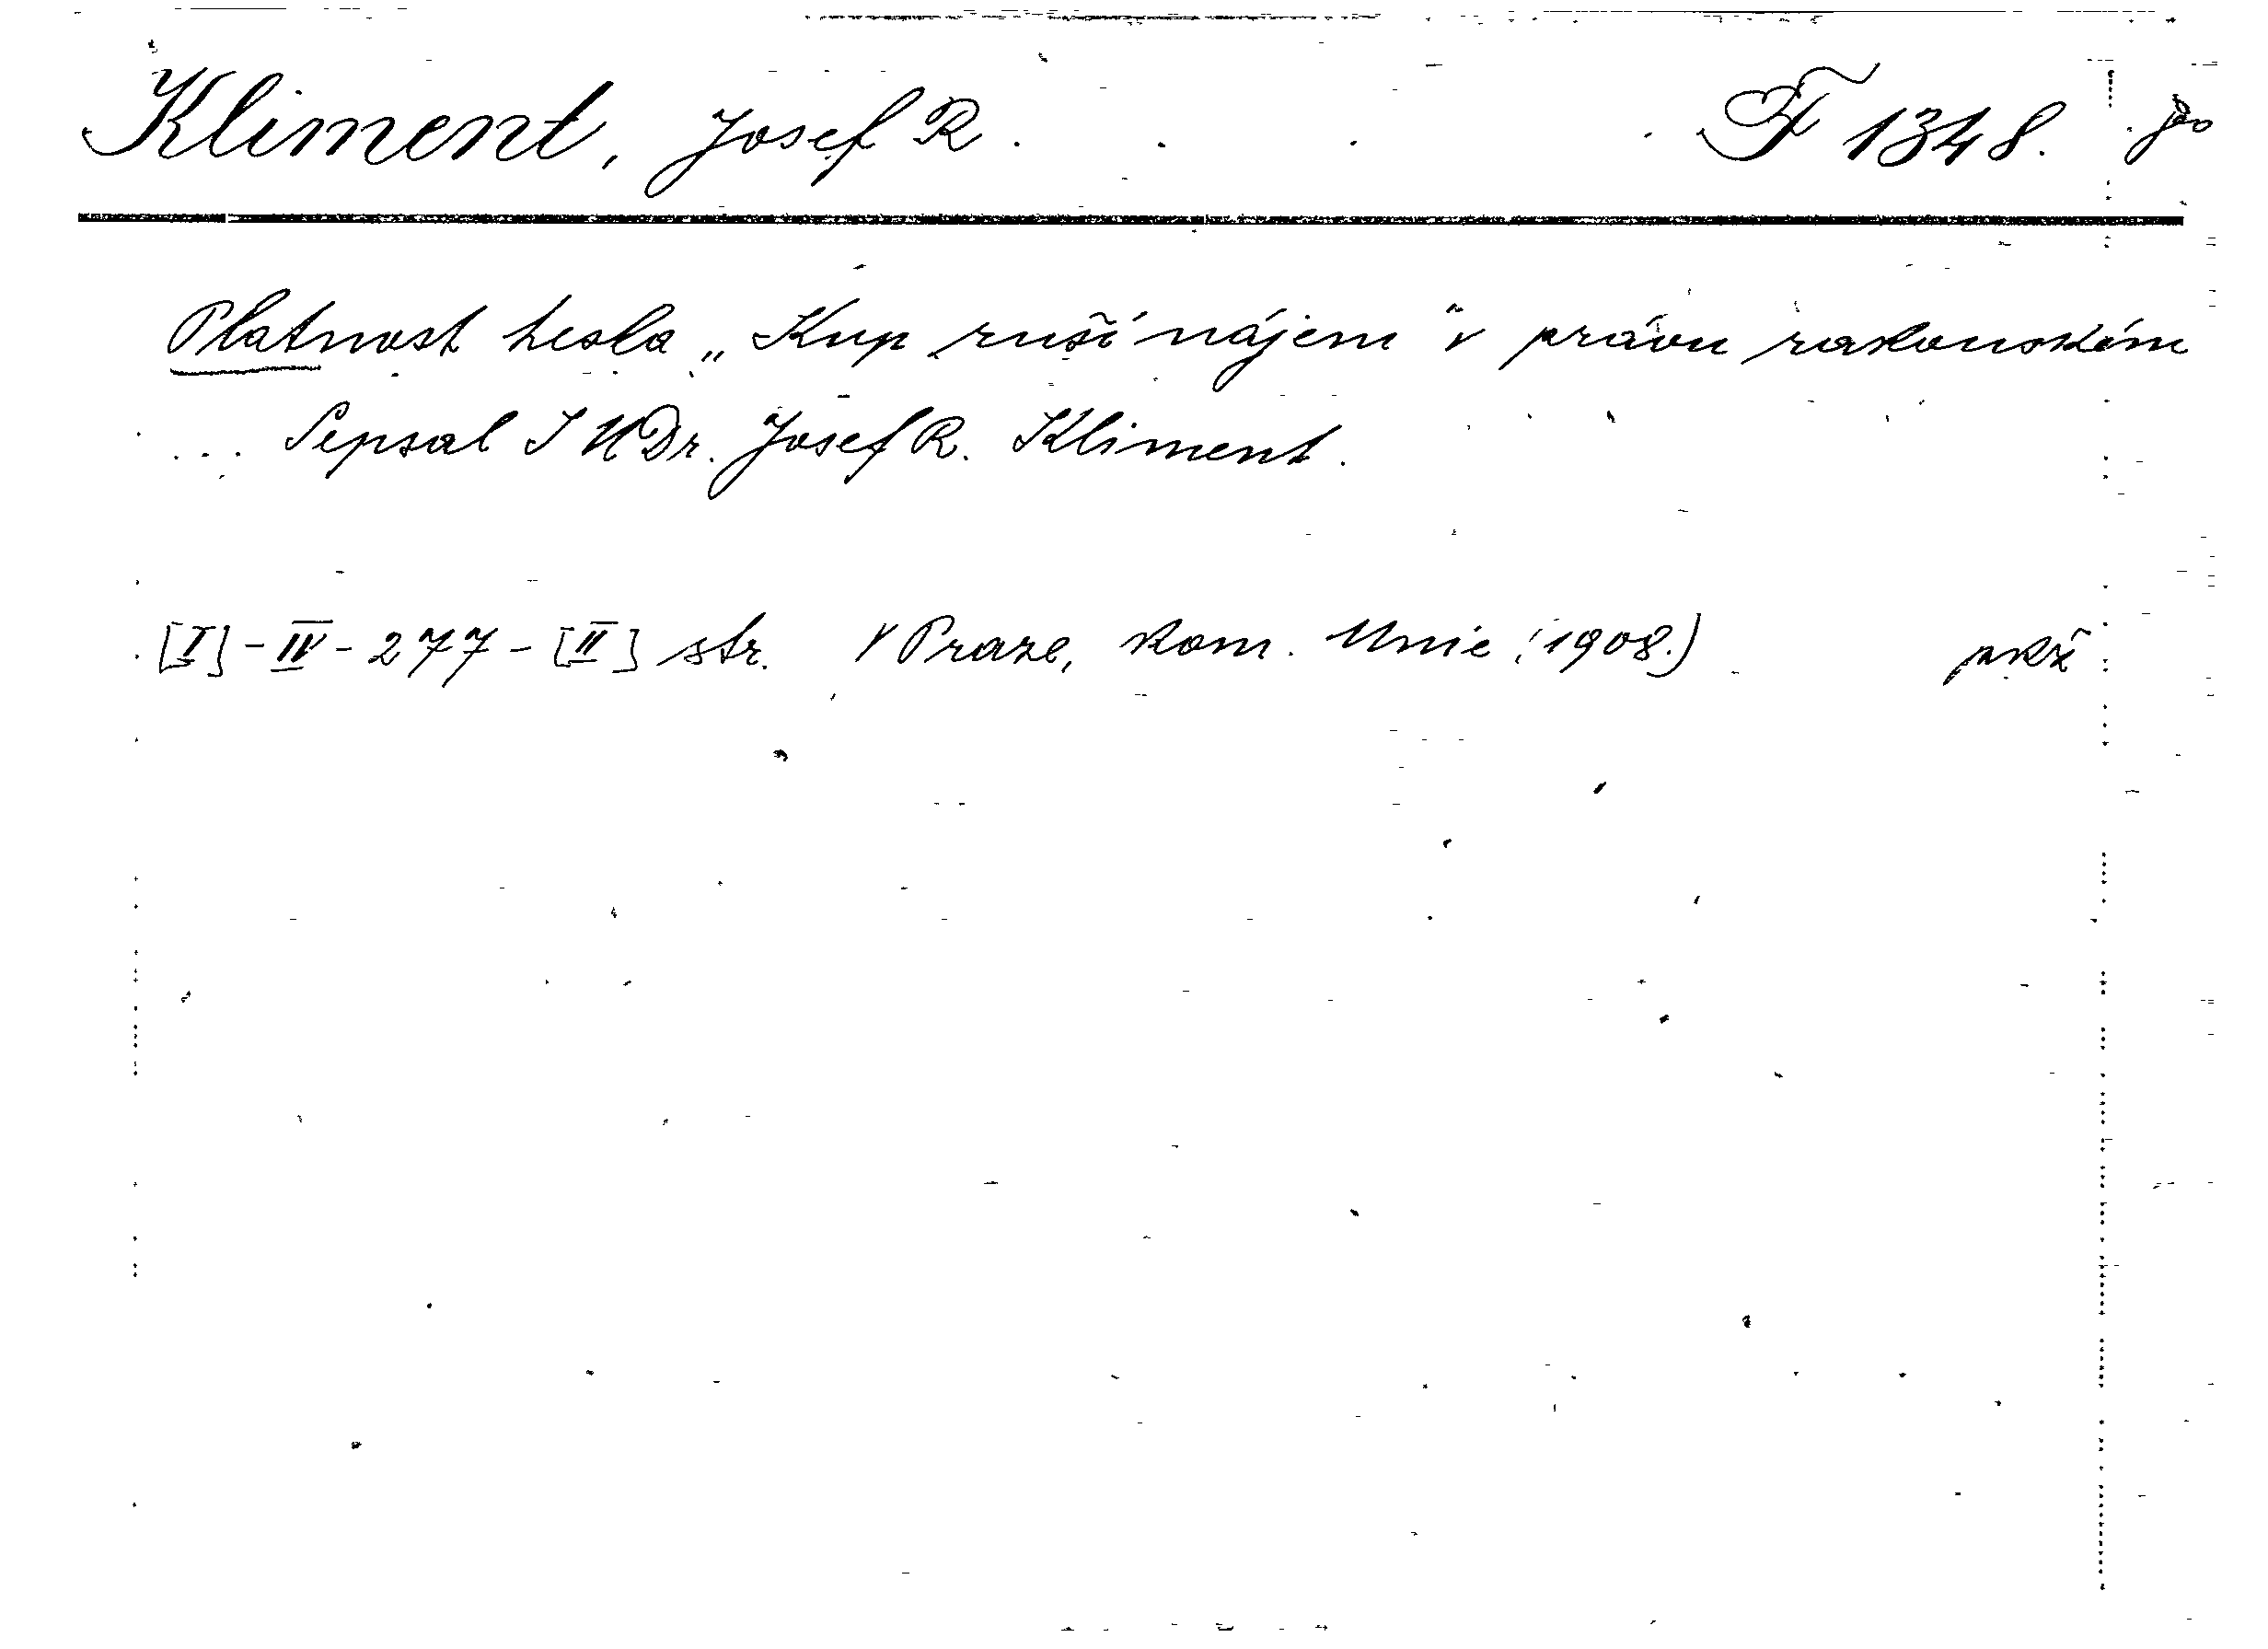 Kliment, Josef R. F 1348.
Platnost hesla „Kup ruší nájem“ v právu rakouském
... Sepsal JUDr. Josef R. Kliment.
[I]-IV-277-[II] str. V Praze, kom. Unie (1908.)